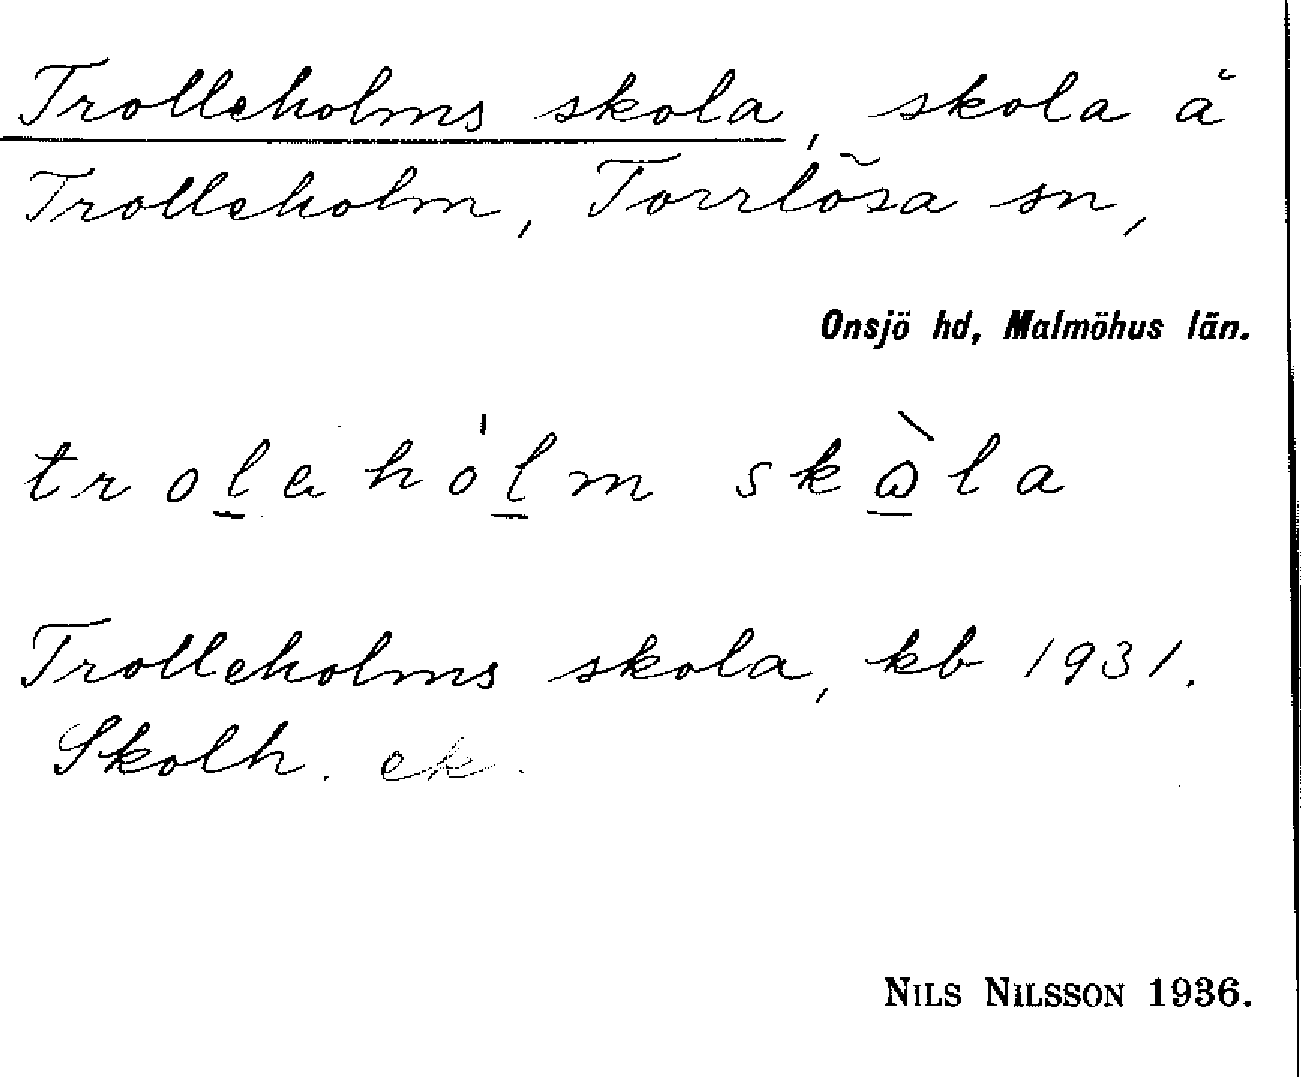 Trolleholms skola, skola å
Trolleholm, Torrlösa sn,
Onsjö hd, Malmöhus län.
troleho̍lm skòla
Trolleholms skola, kb 1931.
Skolh. ek.
NILS NILSSON 1936.